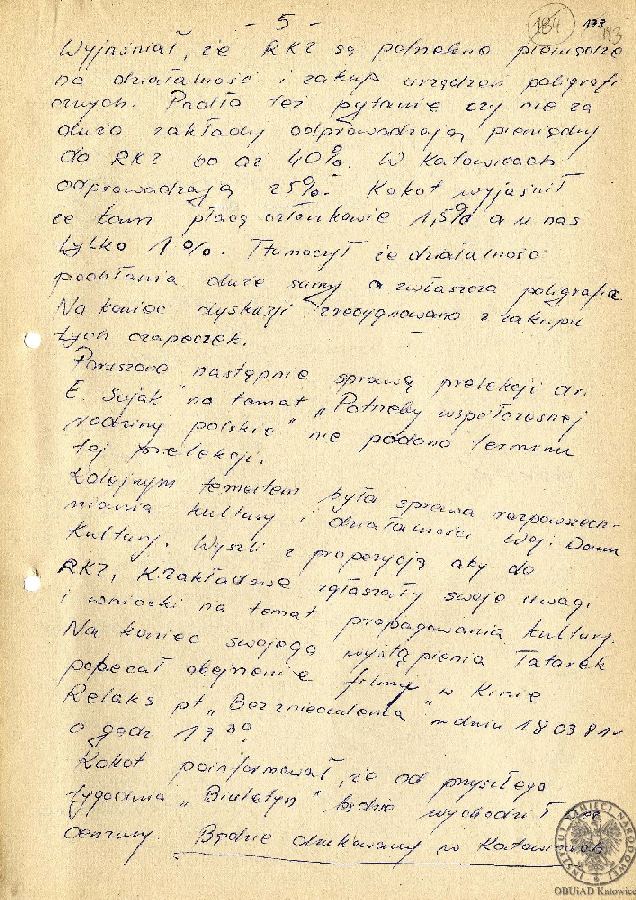 - 5 -
184
173
Wyjaśniał, że RKZ są potrzebne pieniądze
na działalność i zakup urządzeń poligrafi
cznych. Padło też pytanie czy nie za
dużo zakłady odprowadzają pieniędzy
do RKZ bo aż 40%. W Katowicach
odprowadzają 25%. Kokot wyjaśnił
że tam płacą członkowie 1,5% a u nas
tylko 1%. Tłumaczył że działalność
pochłania duże sumy a zwłaszcza poligrafia
Na koniec dyskuzji zrezygnowano z zakupu
tych czapeczek.
Poruszono następnie sprawę prelekcji dr.
E. Sujak na temat „Potrzeby współczesnej
rodziny polskie" nie podano terminu
tej prelekcji.
Kolejnym tematem była sprawa rozpowszech-
niania kultury i działalności Woj. Domu
Kultury. Wyszli z propozycją aby do
RKZ, K.Zakładowe zgłaszały swoje uwagi
i wnioski na temat propagowania kultury.
Na koniec swojego wystąpienia Tatarek
polecał obejrzenie filmu w Kinie
Relaks pt „Bez znieczulenia" w dniu 18 03 81r
o godz 17 30
Kokot poinformował, że od przyszłego
tygodnia „Biuletyn" będzie wychodził bez
cenzury. Będzie drukowany w Katowicach
INSTYTUT PAMIĘCI NARODOWEJ
OBUiAD Katowice